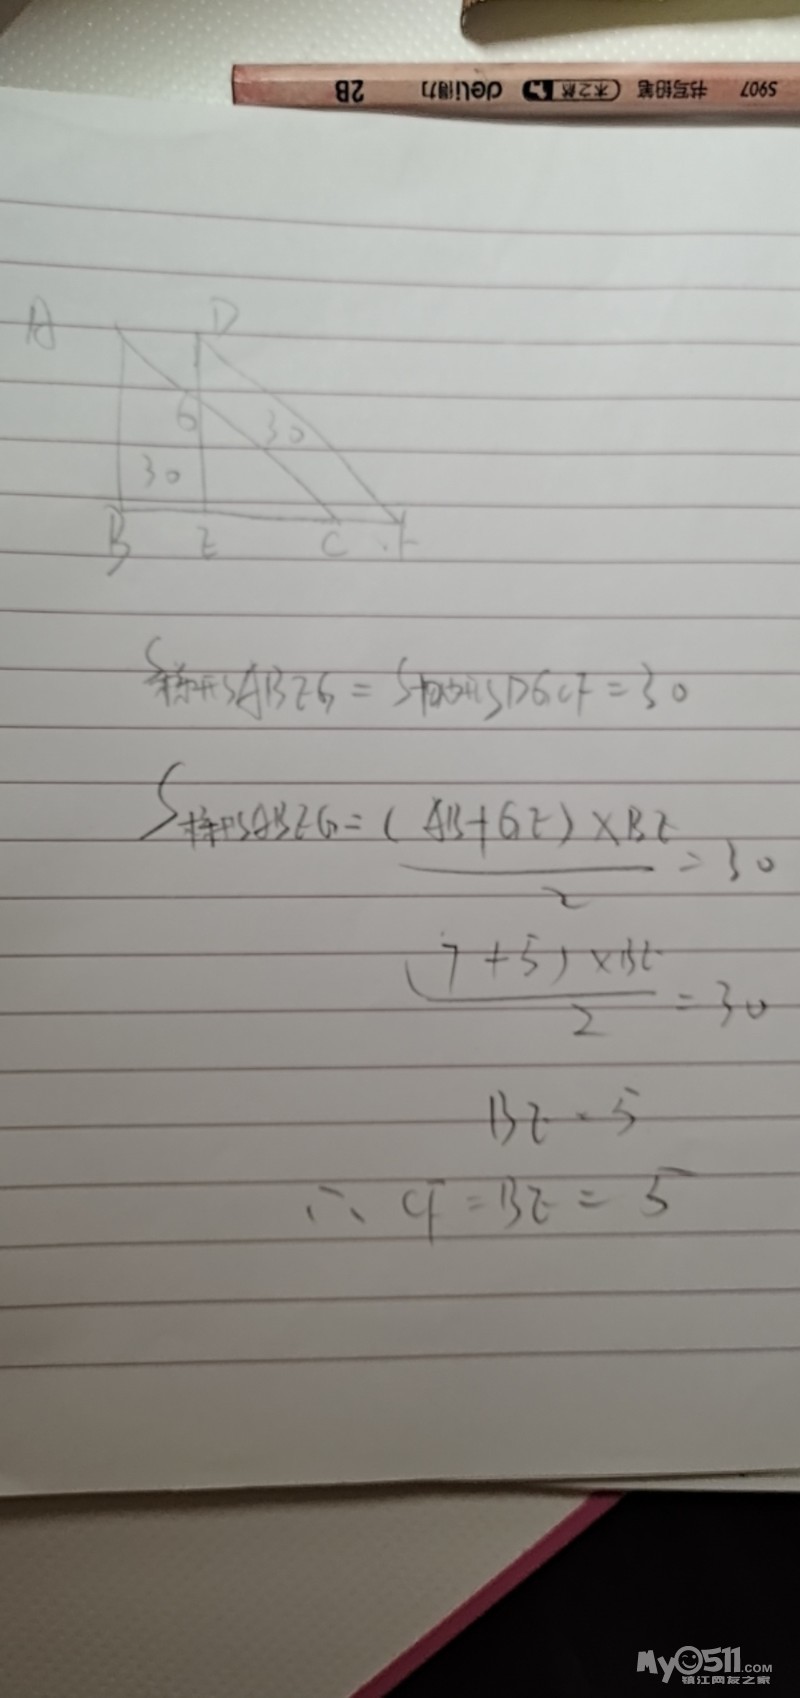 S907 书写铅笔 木之献 deli得力 2B
A D
G 30
30
B E C F
S梯形ABEG = S梯形DGCF = 30
S梯形ABEG = (AB+GE) × BE / 2 = 30
(7+5) × BE / 2 = 30
BE = 5
∴ CF = BE = 5
My0511.com
镇江网友之家